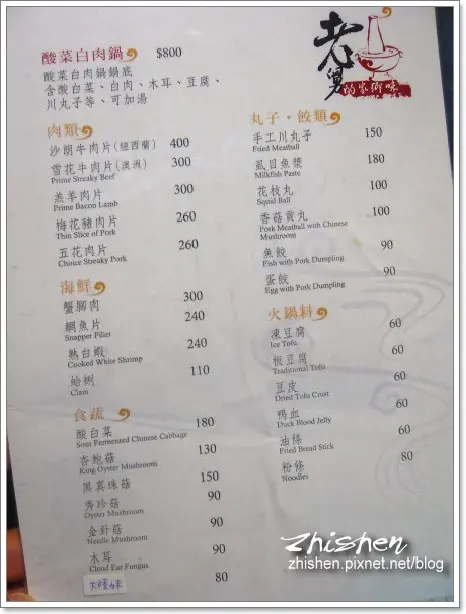 老舅
的家鄉味
酸菜白肉鍋 $800
酸菜白肉鍋鍋底
含酸白菜、白肉、木耳、豆腐、
川丸子等、可加湯
肉類
沙朗牛肉片(紐西蘭) 400
雪花牛肉片(澳洲) 300
Prime Streaky Beef
羔羊肉片 300
Prime Bacon Lamb
梅花豬肉片 260
Thin Slice of Pork
五花肉片 260
Choice Streaky Pork
海鮮
蟹腳肉 300
鯛魚片 240
Snapper Fillet
熟白蝦 240
Cooked White Shrimp
蛤蜊 110
Clam
食蔬
酸白菜 180
Sour Fermented Chinese Cabbage
杏鮑菇 130
King Oyster Mushroom
黑真珠菇 150
秀珍菇 90
Oyster Mushroom
金針菇 90
Needle Mushroom
木耳 90
Cloud Ear Fungus
80
丸子·餃類
手工川丸子 150
Fried Meatball
虱目魚漿 180
Milkfish Paste
花枝丸 100
Squid Ball
香菇貢丸 100
Pork Meatball with Chinese
Mushroom
魚餃 90
Fish with Pork Dumpling
蛋餃 90
Egg with Pork Dumpling
火鍋料
凍豆腐 60
Ice Tofu
板豆腐 60
Traditional Tofu
豆皮 60
Dried Tofu Crust
鴨血 60
Duck Blood Jelly
油條 60
Fried Bread Stick
粉條 80
Noodles
Zhishen
zhishen.pixnet.net/blog